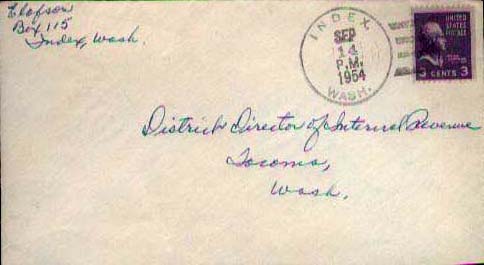 Elofson
Box 115
Index, Wash.
INDEX,
SEP
14
P.M.
1954
WASH.
UNITED
STATES
POSTAGE
3 CENTS 3
District Director of Internal Revenue
Tacoma,
Wash.